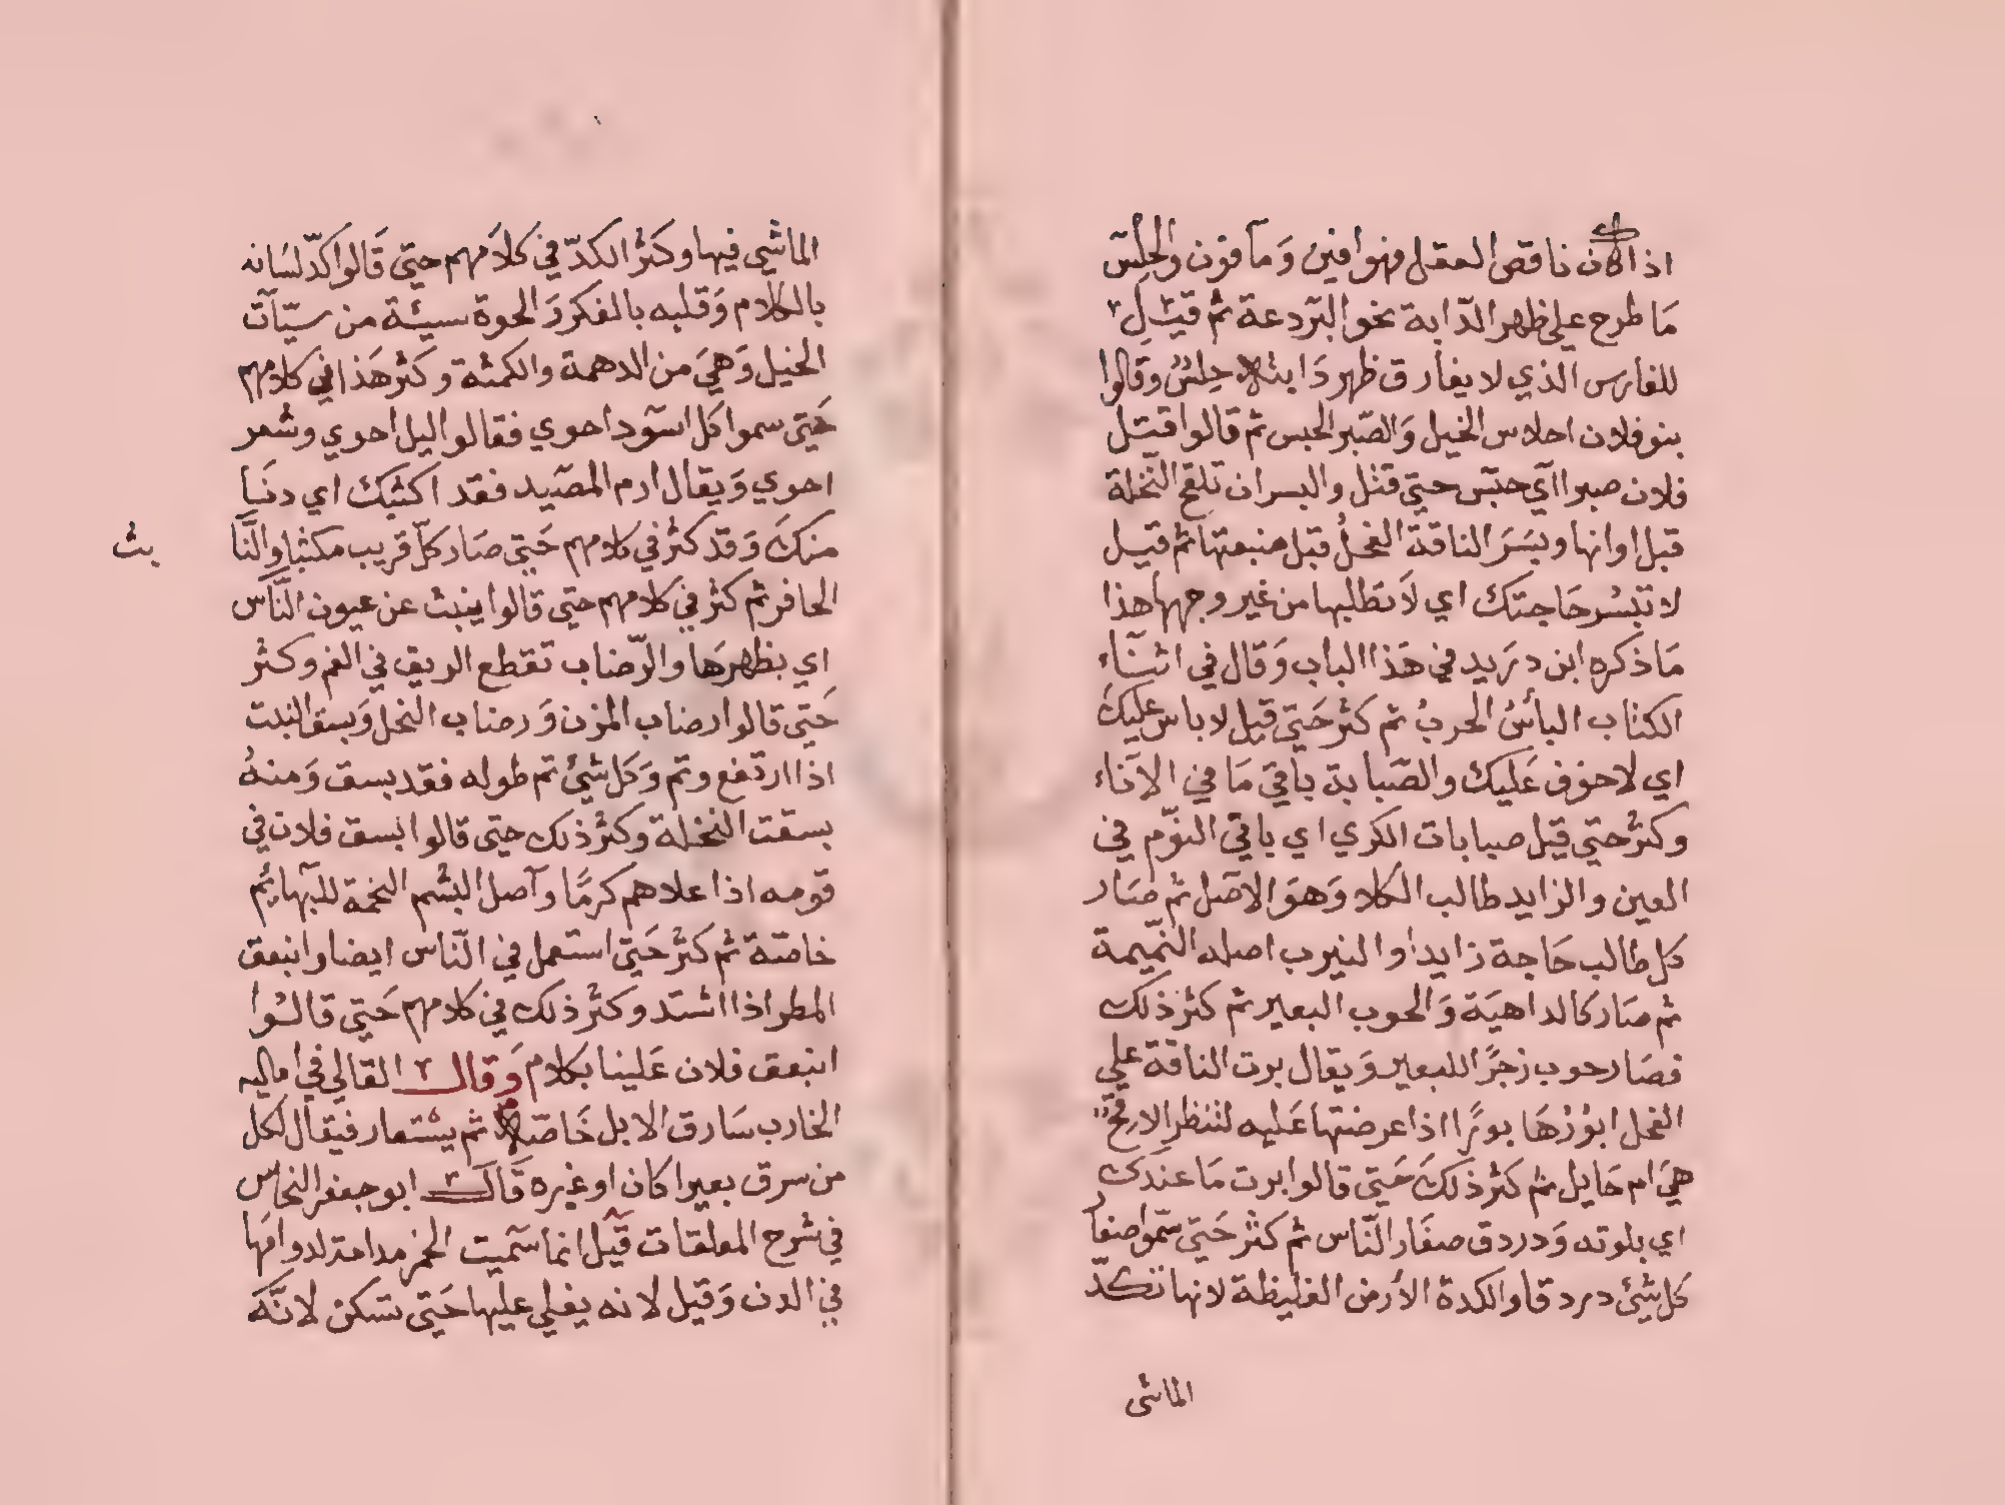 اذا كان ناقص العقل فهو افين وَمآفون والحِلس
مَا طرح علي ظهر الدّابة نحو البَردعة ثم قيْل
للفارس الّذي لا يفارق ظهر دَابته حِلسٌ وقالوا
بنو فلان احلاس الخيل وَالصّبر الحبس ثم قالوا قتل
فلان صبرا اي حبس حتي قتل والبسر ان تلقح النّخلة
قبل اوانها وبسَرَ الناقة الفحلُ قبل ضبعتها ثم قيل
لا تبْسُر حَاجتك اي لاَ تطلبها من غير وجهها هذا
مَا ذكره ابن دريد في هَذا الباب وَقال في اثنآء
الكتاب البأسُ الحربُ ثم كثر حَتي قيل لا باس عليك
اي لا خوف عَليك والصّبابة باقي مَا في الانَاء
وكثر حتي قيل صبابات الكري اي باقي النوّم في
العين والزايد طالب الكلا وَهوَ الاصل ثم صَار
كل طالب حَاجة زايدا والنيرب اصله النّميمة
ثم صَار كالداهيَة وَالحوب البعير ثم كثر ذلك
فصَار حوب زجرًا للبعير وَيقال برت الناقة علي
الفحل ابوُرُهَا بورًا اذا عرضتها عَليه لتنظر الاقحٌ
هيَ ام حَايل ثم كثر ذلكَ حَتي قالوا برت مَا عندَك
اي بلوته وَدردق صغَار النّاس ثم كثر حَتي سّموا صغار
كل شئ دردقا والكدة الأرض الغليظة لانها تكدّ
الماشي
الماشي فيها وكَثر الكدّ في كلاَمهم حتي قَالوا كدّ لسَانه
بالكلام وَقلبه بالفكر وَالحوة سيئة من سيّآت
الخيل وَهيَ من الدهمة والكمتة وكثر هَذا في كلامهم
حَتي سموا كل اسوَد احوي فقالوا ليل احوي وشعر
احوي وَيقال ارم الصّيد فقد اكثبك اي دنَا
منكَ وَقد كثر في كلامهم حَتي صَار كلّ قريب مكثبا والنَّا
بث
الحافر ثم كثر في كلامهم حتي قالوا ينبث عن عيون النَّاس
اي يظهرهَا والرّضاب تقطع الريق في الفم وكثر
حَتي قالوا رضاب المزن وَرضاب النحل وَبسق النبت
اذا ارتفع وتم وَكل شئ تم طوله فقد بسق وَمنهُ
بسقت النخلة وكثر ذلك حتى قالوا بسق فلان في
قومه اذا علاهم كرمًا وآصل البشم التخمة للبهايم
خاصّة ثم كثر حَتي استعمل في النّاس ايضا وانبعق
المطر اذا اشتد وكثر ذلك في كلامهم حَتي قالُوا
انبعق فلان عَلينا بكلام وَقال القالي في اماليه
الخارب سَارق الابل خَاصّة ثم يستعار فيقال لكل
من سرق بعيرا كان او غيره قَال ابو جعفر النحاس
في شرح المعلقات قيل انما سّميت الخمر مدامة لدوامهَا
في الدن وَقيل لانه يغلي عليها حَتي تسكن لانَّهَ